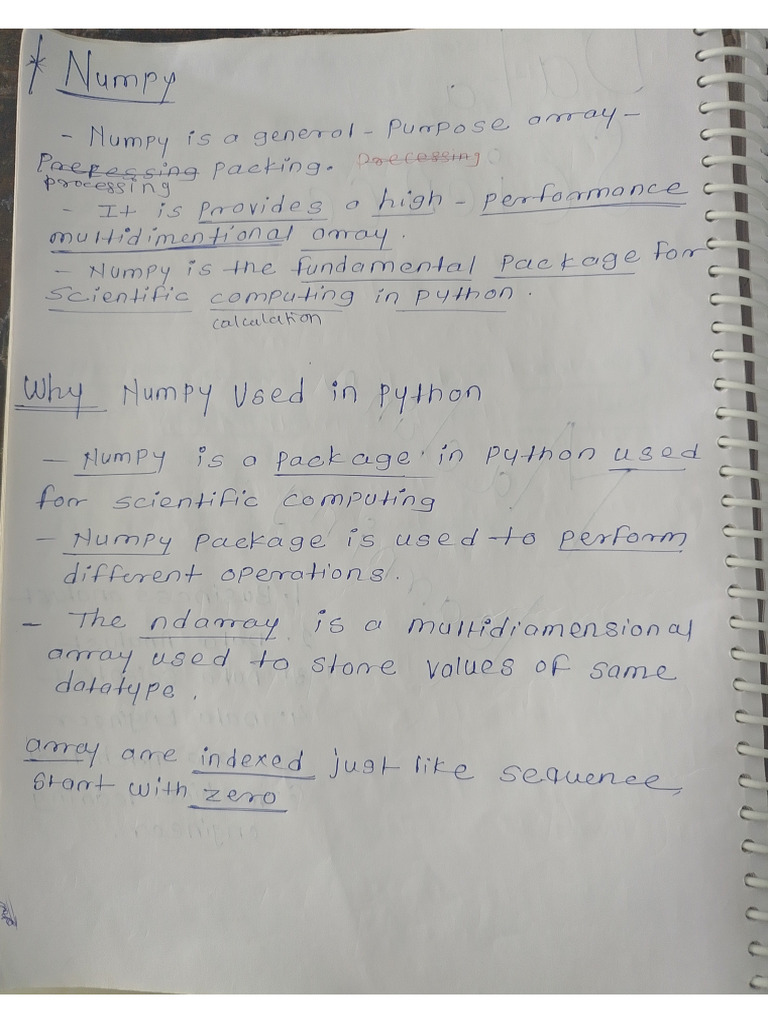 * Numpy
- Numpy is a general - Purpose array -
Precessing packing. Precessing
processing
- It is provides a high - performance
multidimentional array.
- Numpy is the fundamental package for
scientific computing in python.
calculation
Why Numpy Used in python
- Numpy is a package in python used
for scientific computing
- Numpy package is used to perform
different operations.
- The ndarray is a multidiamensional
array used to store values of same
datatype.
array are indexed just like sequence,
start with zero